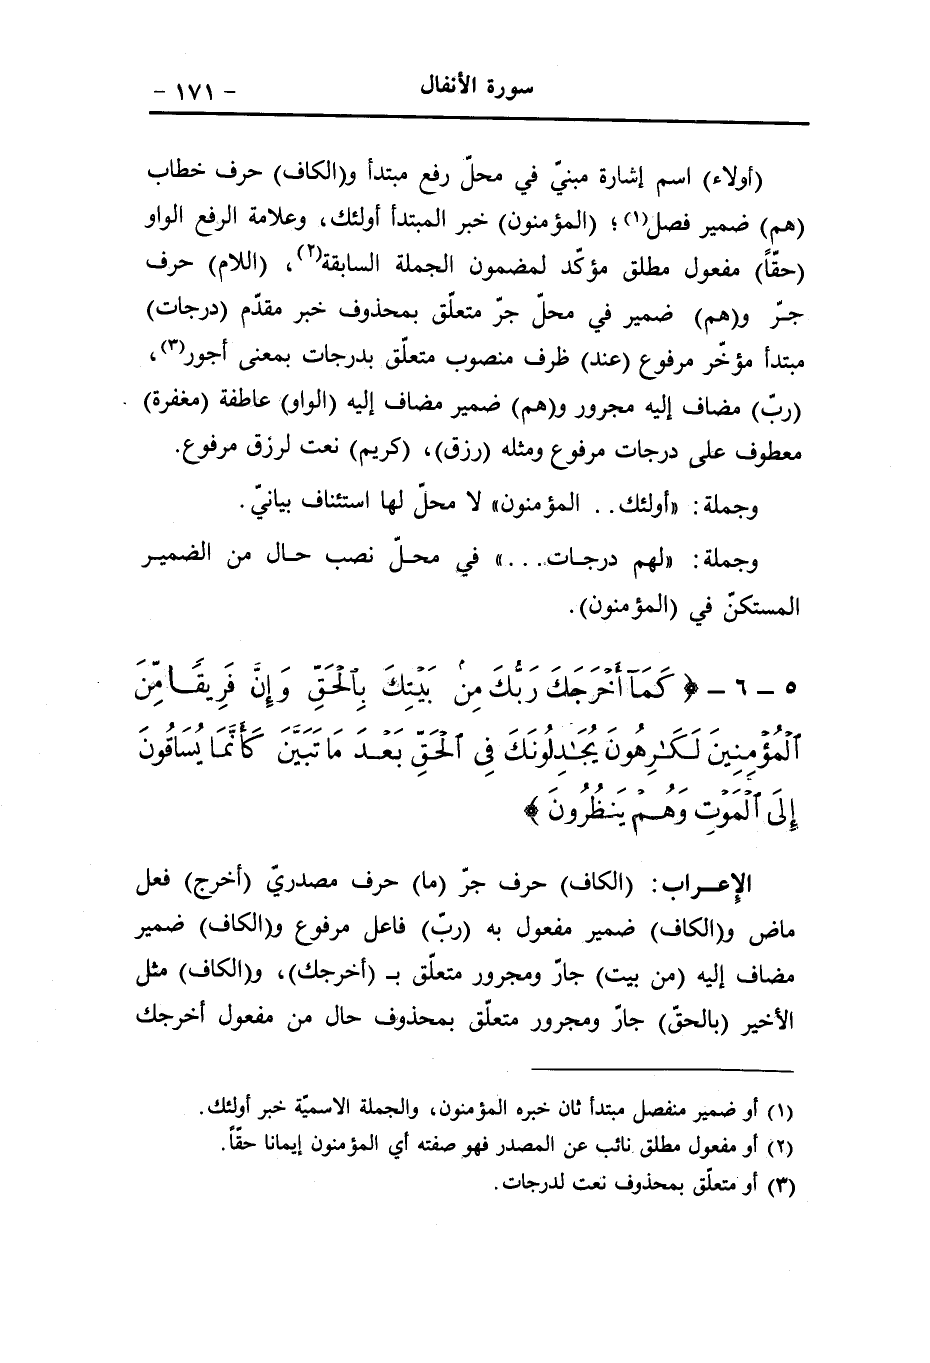 سورة الأنفال
- ١٧١ -
(أولاء) اسم إشارة مبنيّ في محلّ رفع مبتدأ و(الكاف) حرف خطاب
(هم) ضمير فصل(١)؛ (المؤمنون) خبر المبتدأ أولئك، وعلامة الرفع الواو
(حقّاً) مفعول مطلق مؤكّد لمضمون الجملة السابقة(٢)، (اللام) حرف
جرّ و(هم) ضمير في محلّ جرّ متعلّق بمحذوف خبر مقدّم (درجات)
مبتدأ مؤخّر مرفوع (عند) ظرف منصوب متعلّق بدرجات بمعنى أجور(٣)،
(ربّ) مضاف إليه مجرور و(هم) ضمير مضاف إليه (الواو) عاطفة (مغفرة)
معطوف على درجات مرفوع ومثله (رزق)، (كريم) نعت لرزق مرفوع.
وجملة: «أولئك.. المؤمنون» لا محلّ لها استئناف بيانيّ.
وجملة: «لهم درجات...» في محلّ نصب حال من الضمير
المستكنّ في (المؤمنون).
٥ - ٦ - ﴿ كَمَآ أَخْرَجَكَ رَبُّكَ مِنۢ بَيْتِكَ بِٱلْحَقِّ وَإِنَّ فَرِيقًا مِّنَ
ٱلْمُؤْمِنِينَ لَكَٰرِهُونَ يُجَٰدِلُونَكَ فِي ٱلْحَقِّ بَعْدَ مَا تَبَيَّنَ كَأَنَّمَا يُسَاقُونَ
إِلَى ٱلْمَوْتِ وَهُمْ يَنظُرُونَ ﴾
الإعراب: (الكاف) حرف جرّ (ما) حرف مصدريّ (أخرج) فعل
ماض و(الكاف) ضمير مفعول به (ربّ) فاعل مرفوع و(الكاف) ضمير
مضاف إليه (من بيت) جارّ ومجرور متعلّق بـ (أخرجك)، و(الكاف) مثل
الأخير (بالحقّ) جارّ ومجرور متعلّق بمحذوف حال من مفعول أخرجك
(١) أو ضمير منفصل مبتدأ ثان خبره المؤمنون، والجملة الاسميّة خبر أولئك.
(٢) أو مفعول مطلق نائب عن المصدر فهو صفته أي المؤمنون إيمانا حقّاً.
(٣) أو متعلّق بمحذوف نعت لدرجات.